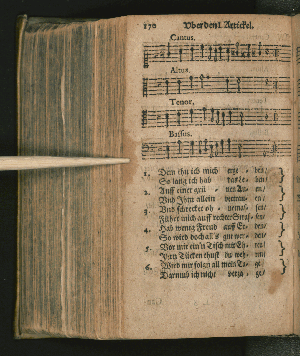 170 Vber den I. Artickel.
Cantus.
Altus.
Tenor.
Bassus.
1. Dem thu ich mich erge - ben/
So lang ich hab das Le - ben/
2. Auff einer grü - nen Au - en/
Vnd Ihm allein vertrau - en/
3. Vnd schrecket oh -
Führet mich auff rechter Stras - sen/
4. Hab wenig Freud auff Er - den/
So wird doch all's gut wer - den/
5. Vor mir ein'n Tisch mit
6. Wird mir folgn all mein Ta - ge/
Darumb ich nicht verza - ge/